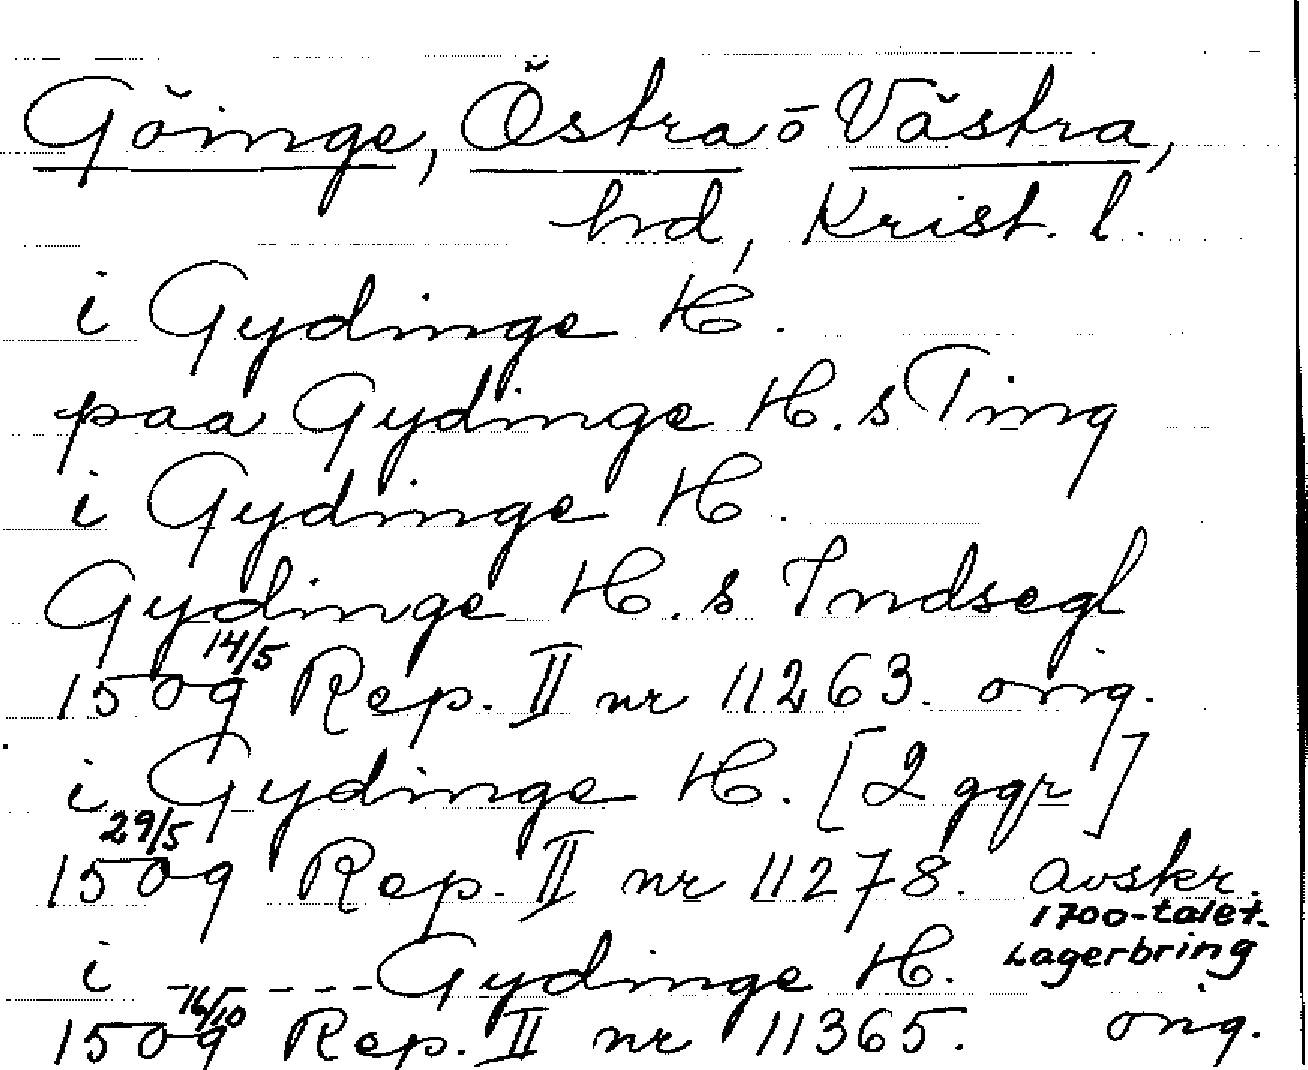 Göinge, Östra o Västra,
hrd, Krist. l.
i Gydinge H.
paa Gydinge H.s Ting
i Gydinge H.
Gydinge H.s Indsegl
14/5
1509 Rep. II nr 11263. orig.
i Gydinge H. [2 ggr]
29/5
1509 Rep. II nr 11278. avskr.
1700-talet.
Lagerbring
i - - - - - - Gydinge H.
16/10
1509 Rep. II nr 11365. orig.